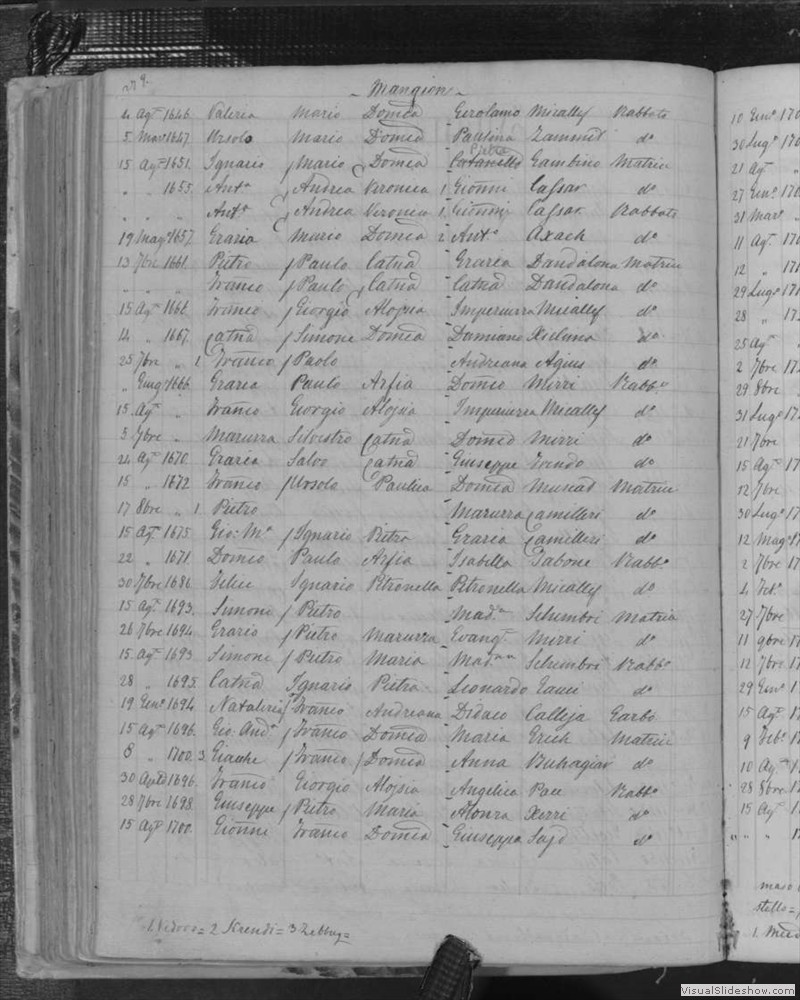 279.
- Mangion -
4 Agto 1646. Valeria Mario Domca Gerolamo Micallef Rabbato
5 Mar 1647 Ursola Mario Domca Paulina Zammit do
Pietra
15 Agto 1651. Ignazio / Mario Domca Catarinella Gambino Matrice
" " 1655. Anto / Andrea Veronica 1 Gionni Cassar do
" " " Anto / Andrea Veronica 1 Gionni Cassar Rabbato
19 Mago 1657. Grazia Mario Domca 2 Anto Axach do
13 7bre 1661. Pietro / Paulo Catna Grazia Dandalona Matrice
" " " Franco / Paulo Catna Catna Dandalona do
15 Agto 1666. Franco / Giorgio Aloysia Imperuzza Micallef do
14 " 1667. Catna / Simone Domca Damiano Xicluna do
25 7bre " 1 Franco / Paolo Andreana Agius do
" Giug 1666. Grazia Paulo Arfia Domco Mizzi Rabbo
15 Agto " Franco Giorgio Aloysia Imperuzza Micallef do
5 7bre " Maruzza Silvestro Catna Domco Mizzi do
24 Agto 1670. Grazia Salvo Catna Giuseppe do
15 " 1672 Franco / Ursolo Paulica Domca Muscat Matrice
17 8bre " 1 Pietro Maruzza Camilleri do
15 Agto 1675. Gio: Ma / Ignazio Pietra Grazia Camilleri do
22 " 1671. Domco Paulo Arfia Isabella Tabone Rabbo
30 7bre 1686. Felice Ignazio Petronella Petronella Micallef do
15 Agto 1693. Simone / Pietro Madna Schembri Matrice
26 7bre 1694. Grazio / Pietro Maruzza Evangta Mizzi do
15 Agto 1693 Simone / Pietro Maria Madna Schembri Rabbo
28 " 1695. Catna Ignazio Pietra Leonardo do
19 Geno 1694 Natalizio / Franco Andreana Didaco Calleja Garbo
15 Agto 1696. Gio: Anda / Franco Domca Maria Grech Matrice
8 " 1700. 3 / Franco / Domca Anna Buhagiar do
30 1696. Franco Giorgio Aloysia Angelica Pace Rabbo
28 7bre 1698. Giuseppe / Pietro Maria Alonza Xerri do
15 Agto 1700. Gionni Franco Domca Giuseppa do
1. Vedovo = 2 Krendi = 3 Zebbug =
10 Geno 170
30 Lugo 170
21 Agto "
27 Geno 170
31 Maro "
11 Agto 170
12 " 171
29 Lugo 171
28 "
25 Agto
2 7bre
29 8bre
31 Lugo
21 7bre
15 Agto 17
12 7bre
30 Lugo 17
12 Mago 17
2 7bre
4
27 7bre
11 9bre 17
12 7bre 17
29 Geno 17
15 Agto 17
9 Febo 17
10 Agto
28 8bre 17
15 Agto
" " 17
VisualSlideshow.com